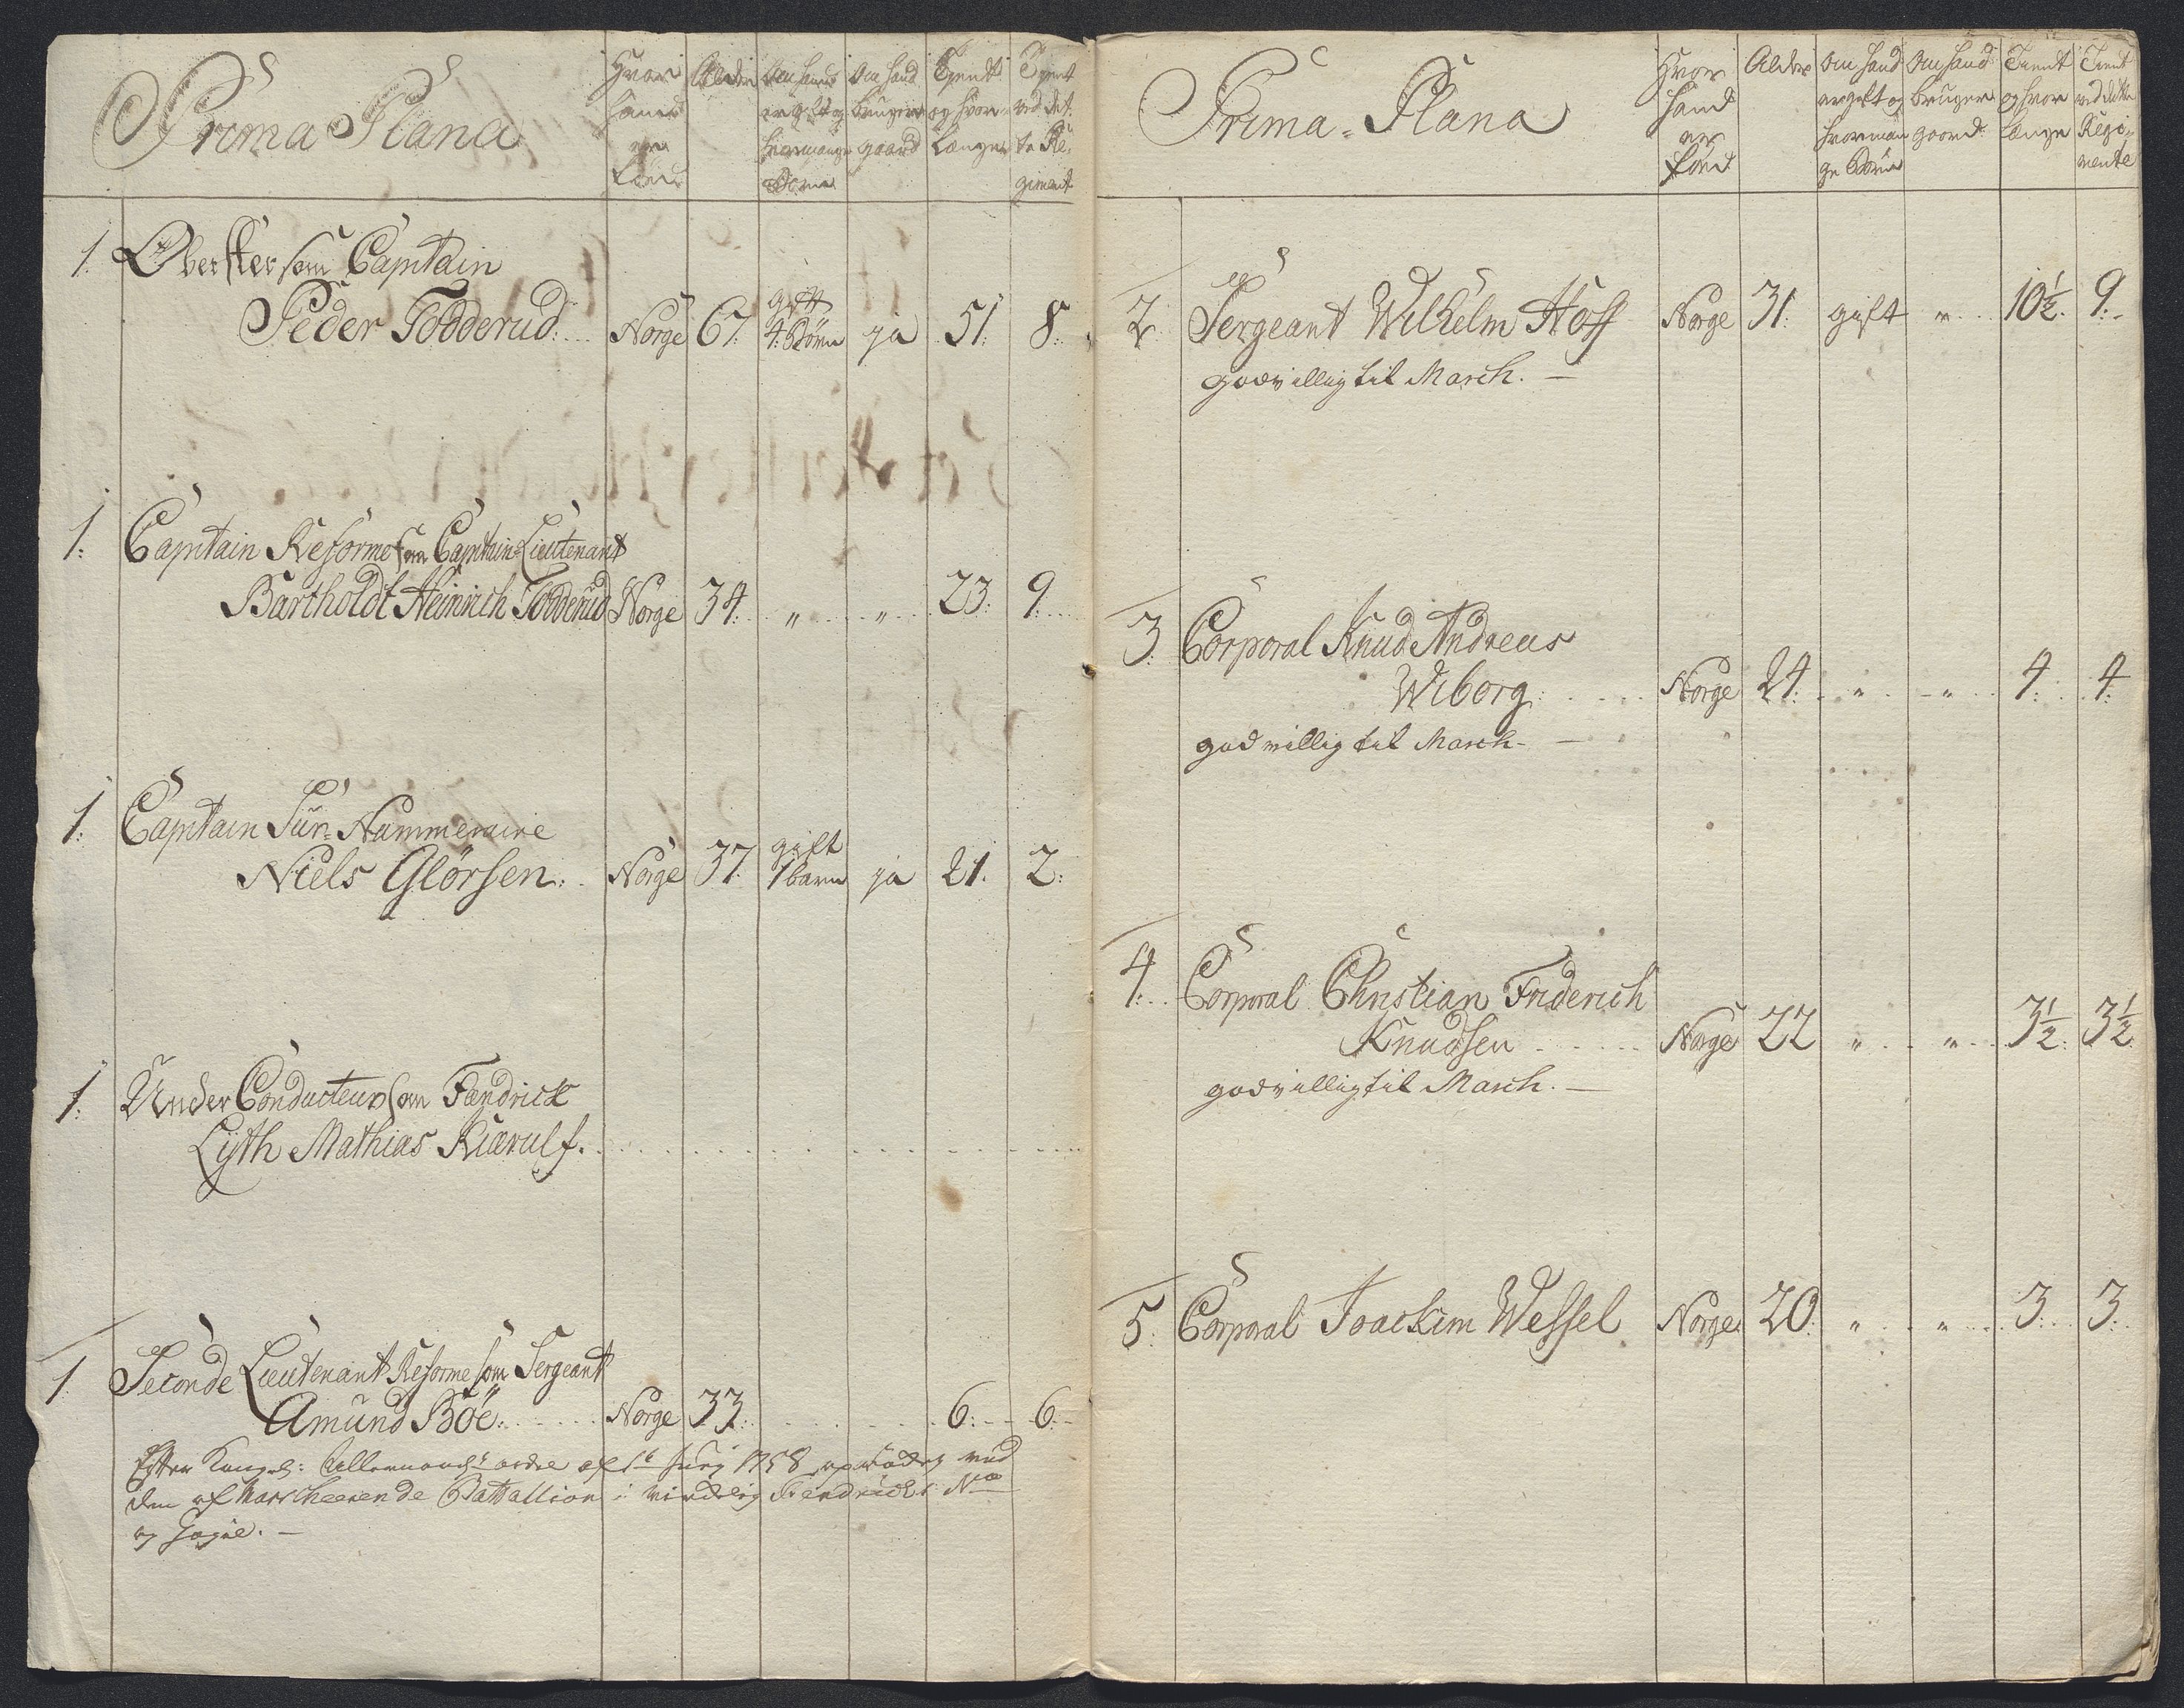 Prima Plana
Hvor hand er Föed
Alder
Om hand er gift og hvormange Börn
Om hand bruger gaard
Tjent og hvor længe
Tjent ved dette Regiment
1. Oberster som Captain
Peder Todderud: Norge 67. gift 4: Börn ja 51: 8:
1: Captain Reforme som Captain-Lieutenant
Bartholdt Heinrich Todderud Norge 34: " " 23: 9:
1: Captain Sur-Nummeraire
Niels Glörsen: Norge 37. gift 1 barn ja 21. 2:
1: Under Conducteur som Fændrick
Lyth Mathias Kiærulf.
1: Seconde Lieutenant Reforme som Sergeant
Amund Böe: Norge 33: 6: 6:
Efter Kongel: Allernaadst ordre af 1758 ved
den af Marscheerende Battallion i virkelig Fendrichs
og Gage. —
Prima-Plana
Hvor hand er född
Alder
Om hand er gift og hvormange Börn
Om hand bruger gaard
Tient og hvor længe
Tient ved dette Regimente
2. Sergeant Wilhelm Hoff Norge 31. gift " 10½. 9.
godvillig til March. —
3: Corporal Knud Andreas
Wiborg: Norge 24: " " 4: 4:
godvillig til March. —
4: Corporal Christian Friderich
Knudsen Norge 22 " " 3½: 3½
godvillig til March. —
5: Corporal Joackim Wessel Norge 20: " " 3: 3.